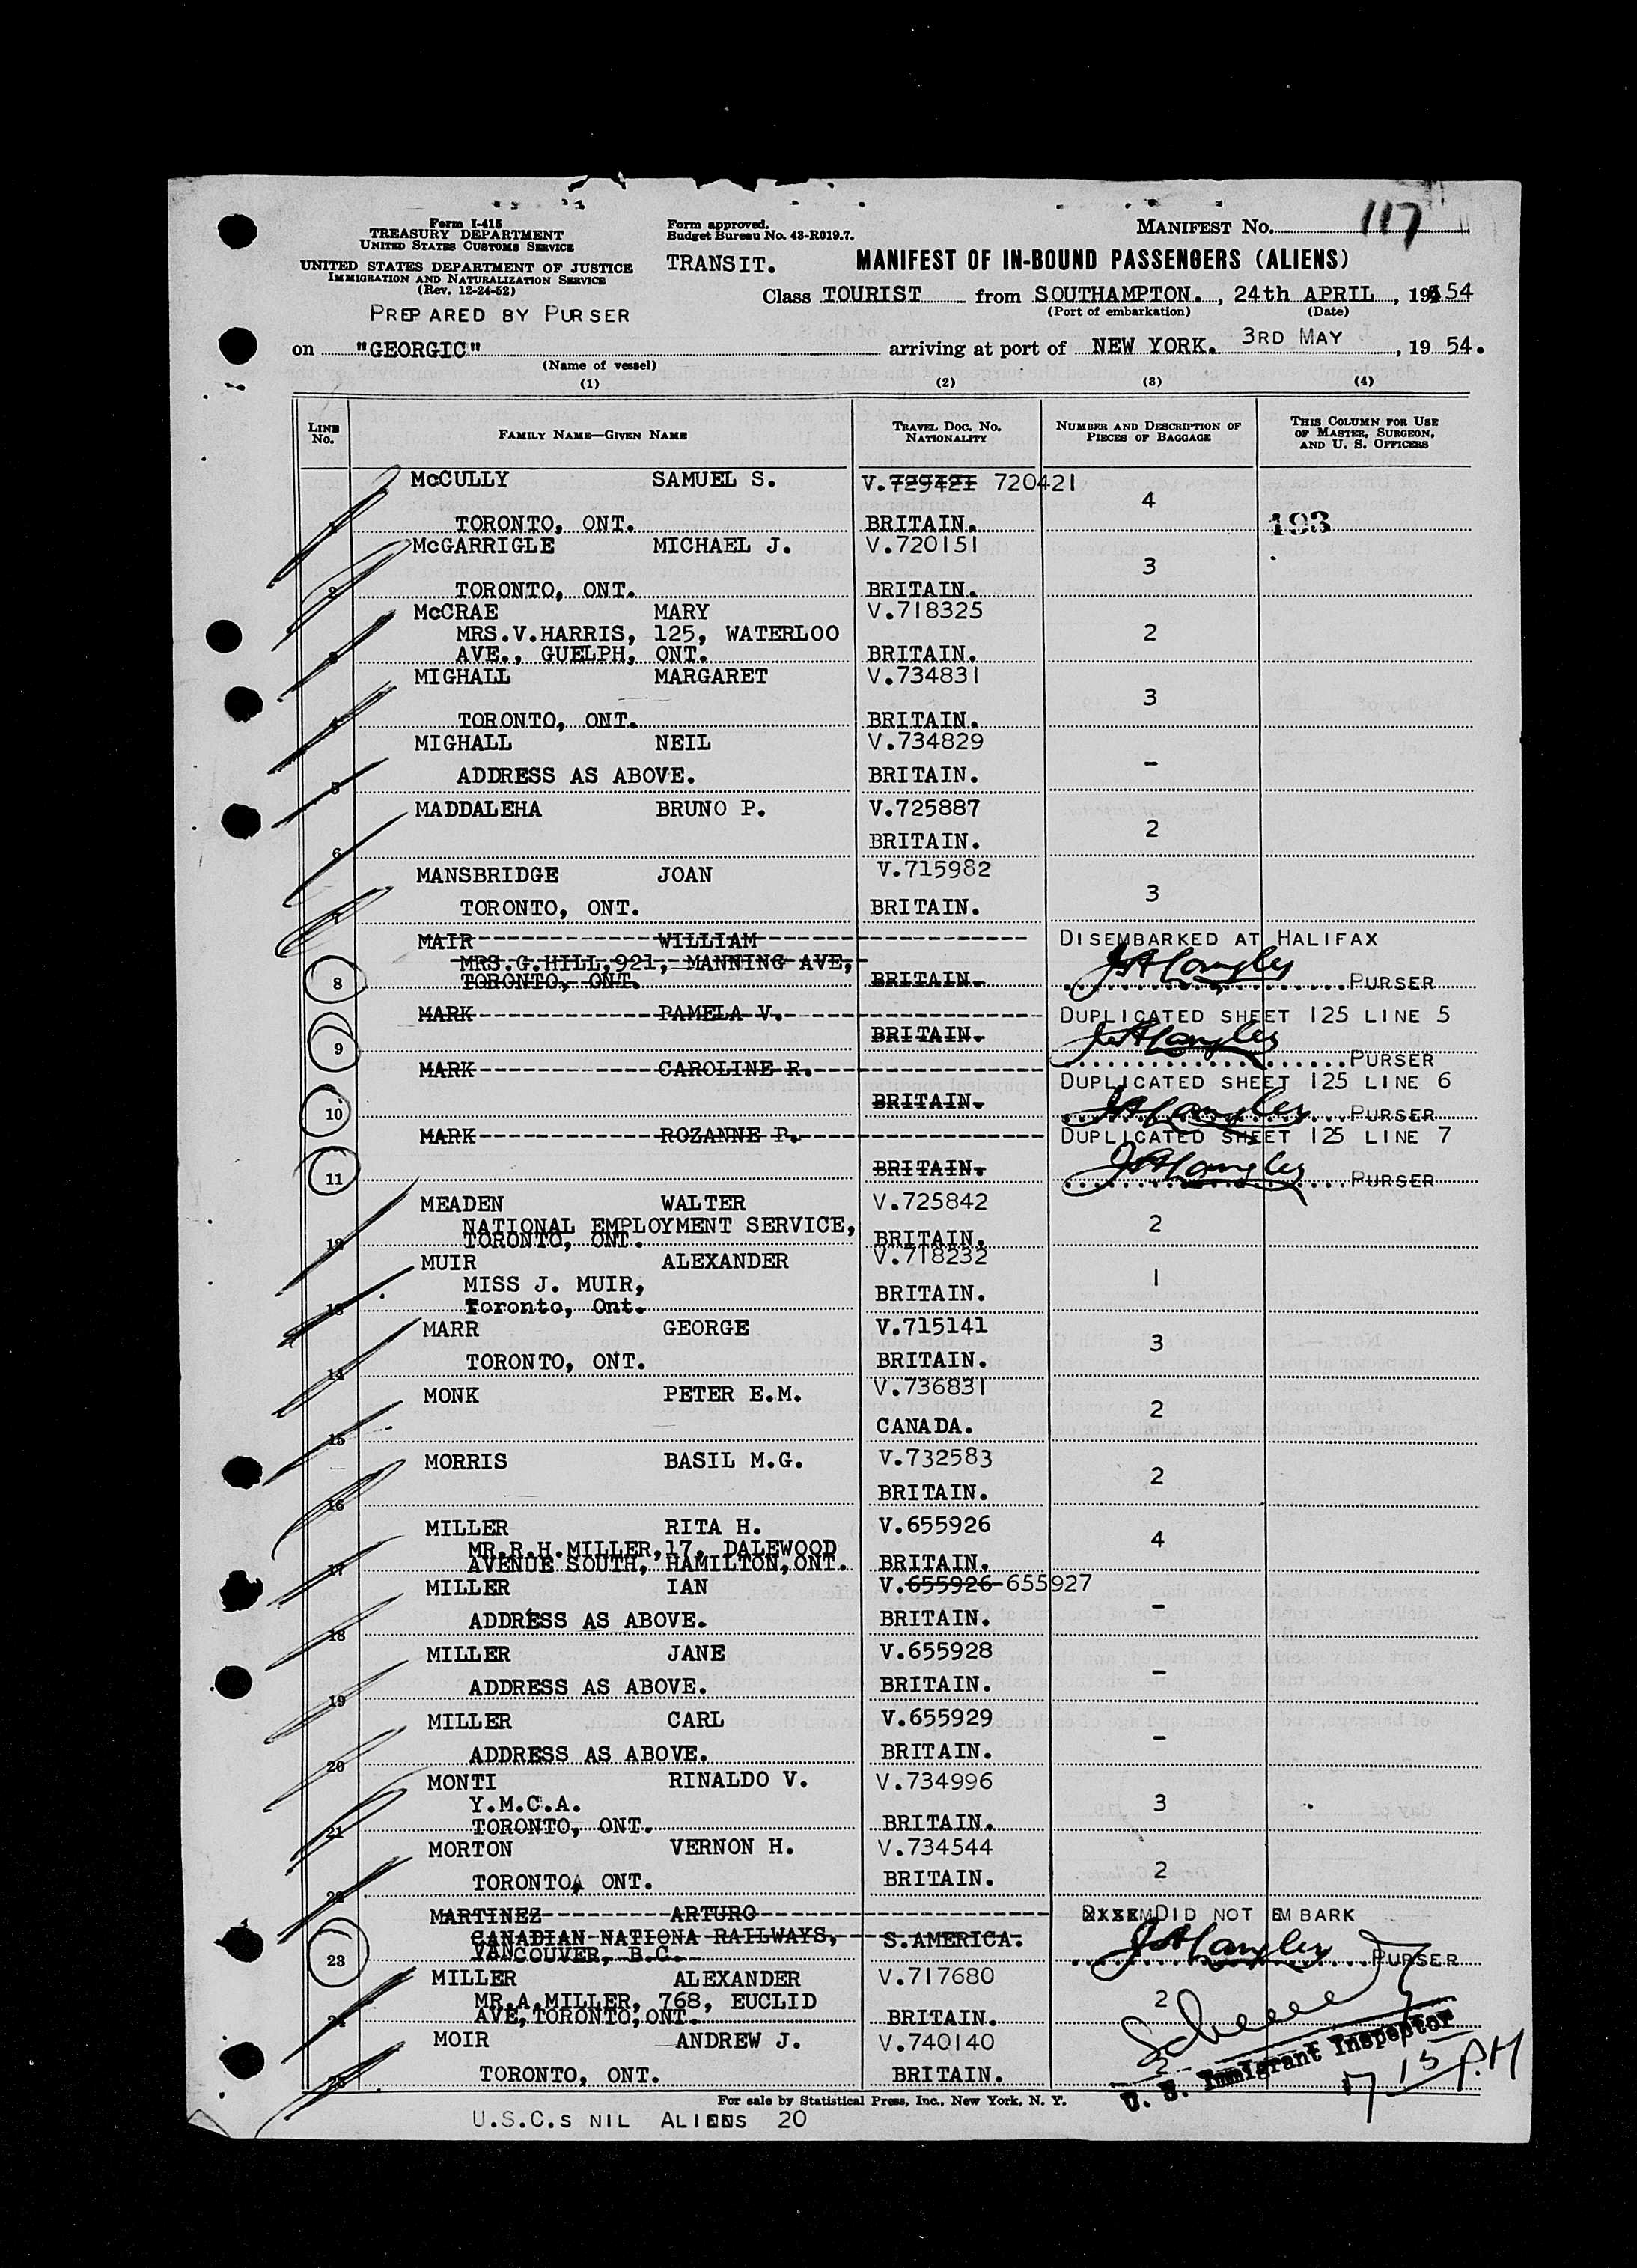 Form I-415
TREASURY DEPARTMENT
UNITED STATES CUSTOMS SERVICE
UNITED STATES DEPARTMENT OF JUSTICE
IMMIGRATION AND NATURALIZATION SERVICE
(Rev. 12-24-52)
PREPARED BY PURSER
Form approved.
Budget Bureau No. 43-R019.7.
TRANSIT.
MANIFEST No. 117
MANIFEST OF IN-BOUND PASSENGERS (ALIENS)
Class TOURIST from SOUTHAMPTON. , 24th APRIL , 1954
(Port of embarkation) (Date)
on "GEORGIC" arriving at port of NEW YORK. 3RD MAY , 19 54.
(Name of vessel)
(1) (2) (3) (4)
LINE No. FAMILY NAME—GIVEN NAME TRAVEL DOC. No. NATIONALITY NUMBER AND DESCRIPTION OF PIECES OF BAGGAGE THIS COLUMN FOR USE OF MASTER, SURGEON, AND U. S. OFFICERS
McCULLY SAMUEL S. V.729421 720421
4
1 TORONTO, ONT. BRITAIN. 193
McGARRIGLE MICHAEL J. V.720151
3
2 TORONTO, ONT. BRITAIN.
McCRAE MARY V.718325
MRS.V.HARRIS, 125, WATERLOO 2
3 AVE., GUELPH, ONT. BRITAIN.
MIGHALL MARGARET V.734831
3
4 TORONTO, ONT. BRITAIN.
MIGHALL NEIL V.734829
-
5 ADDRESS AS ABOVE. BRITAIN.
MADDALEHA BRUNO P. V.725887
2
6 BRITAIN.
MANSBRIDGE JOAN V.715982
3
7 TORONTO, ONT. BRITAIN.
MAIR WILLIAM DISEMBARKED AT HALIFAX
MRS.G.HILL,921, MANNING AVE,
8 TORONTO, ONT. BRITAIN. PURSER
MARK PAMELA V. DUPLICATED SHEET 125 LINE 5
9 BRITAIN. PURSER
MARK CAROLINE R. DUPLICATED SHEET 125 LINE 6
10 BRITAIN. PURSER
MARK ROZANNE P. DUPLICATED SHEET 125 LINE 7
11 BRITAIN. PURSER
MEADEN WALTER V.725842
NATIONAL EMPLOYMENT SERVICE, 2
12 TORONTO, ONT. BRITAIN.
MUIR ALEXANDER V.718232
MISS J. MUIR, 1
13 Toronto, Ont. BRITAIN.
MARR GEORGE V.715141
3
14 TORONTO, ONT. BRITAIN.
MONK PETER E.M. V.736831
2
15 CANADA.
MORRIS BASIL M.G. V.732583
2
16 BRITAIN.
MILLER RITA H. V.655926
MR.R.H.MILLER,17, DALEWOOD 4
17 AVENUE SOUTH, HAMILTON,ONT. BRITAIN.
MILLER IAN V.655926 655927
-
18 ADDRESS AS ABOVE. BRITAIN.
MILLER JANE V.655928
-
19 ADDRESS AS ABOVE. BRITAIN.
MILLER CARL V.655929
-
20 ADDRESS AS ABOVE. BRITAIN.
MONTI RINALDO V. V.734996
Y.M.C.A. 3
21 TORONTO, ONT. BRITAIN.
MORTON VERNON H. V.734544
2
22 TORONTO, ONT. BRITAIN.
MARTINEZ ARTURO DID NOT EMBARK
CANADIAN NATIONA RAILWAYS, S.AMERICA.
23 VANCOUVER, B.C. PURSER
MILLER ALEXANDER V.717680
MR.A.MILLER, 768, EUCLID 2
24 AVE,TORONTO,ONT. BRITAIN.
MOIR ANDREW J. V.740140
2
25 TORONTO, ONT. BRITAIN.
U. S. Immigrant Inspector
7 15 P.M
For sale by Statistical Press, Inc., New York, N. Y.
U.S.C.s NIL ALIENS 20